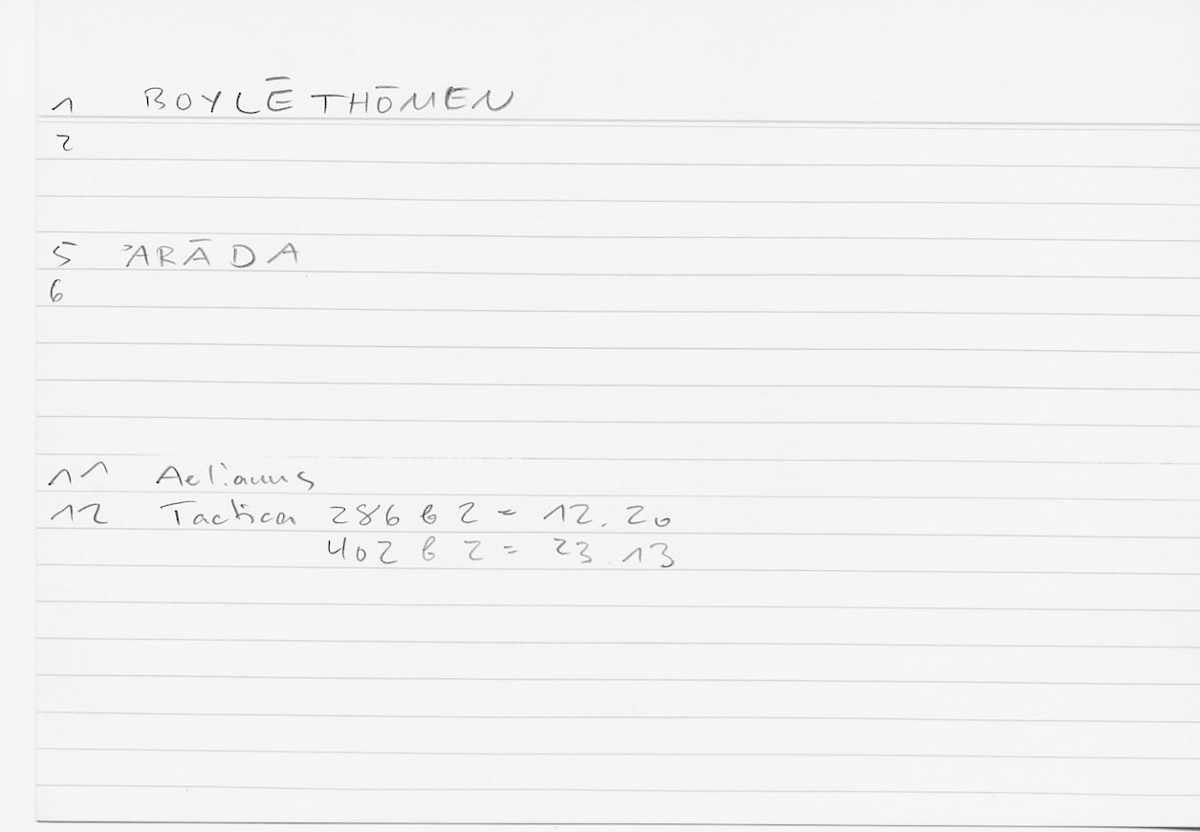 1 BOYLĒTHŌMEN
2
5 ʾARĀDA
6
11 Aelianus
12 Tactica 286 b 2 = 12.20
402 b 2 = 23.13